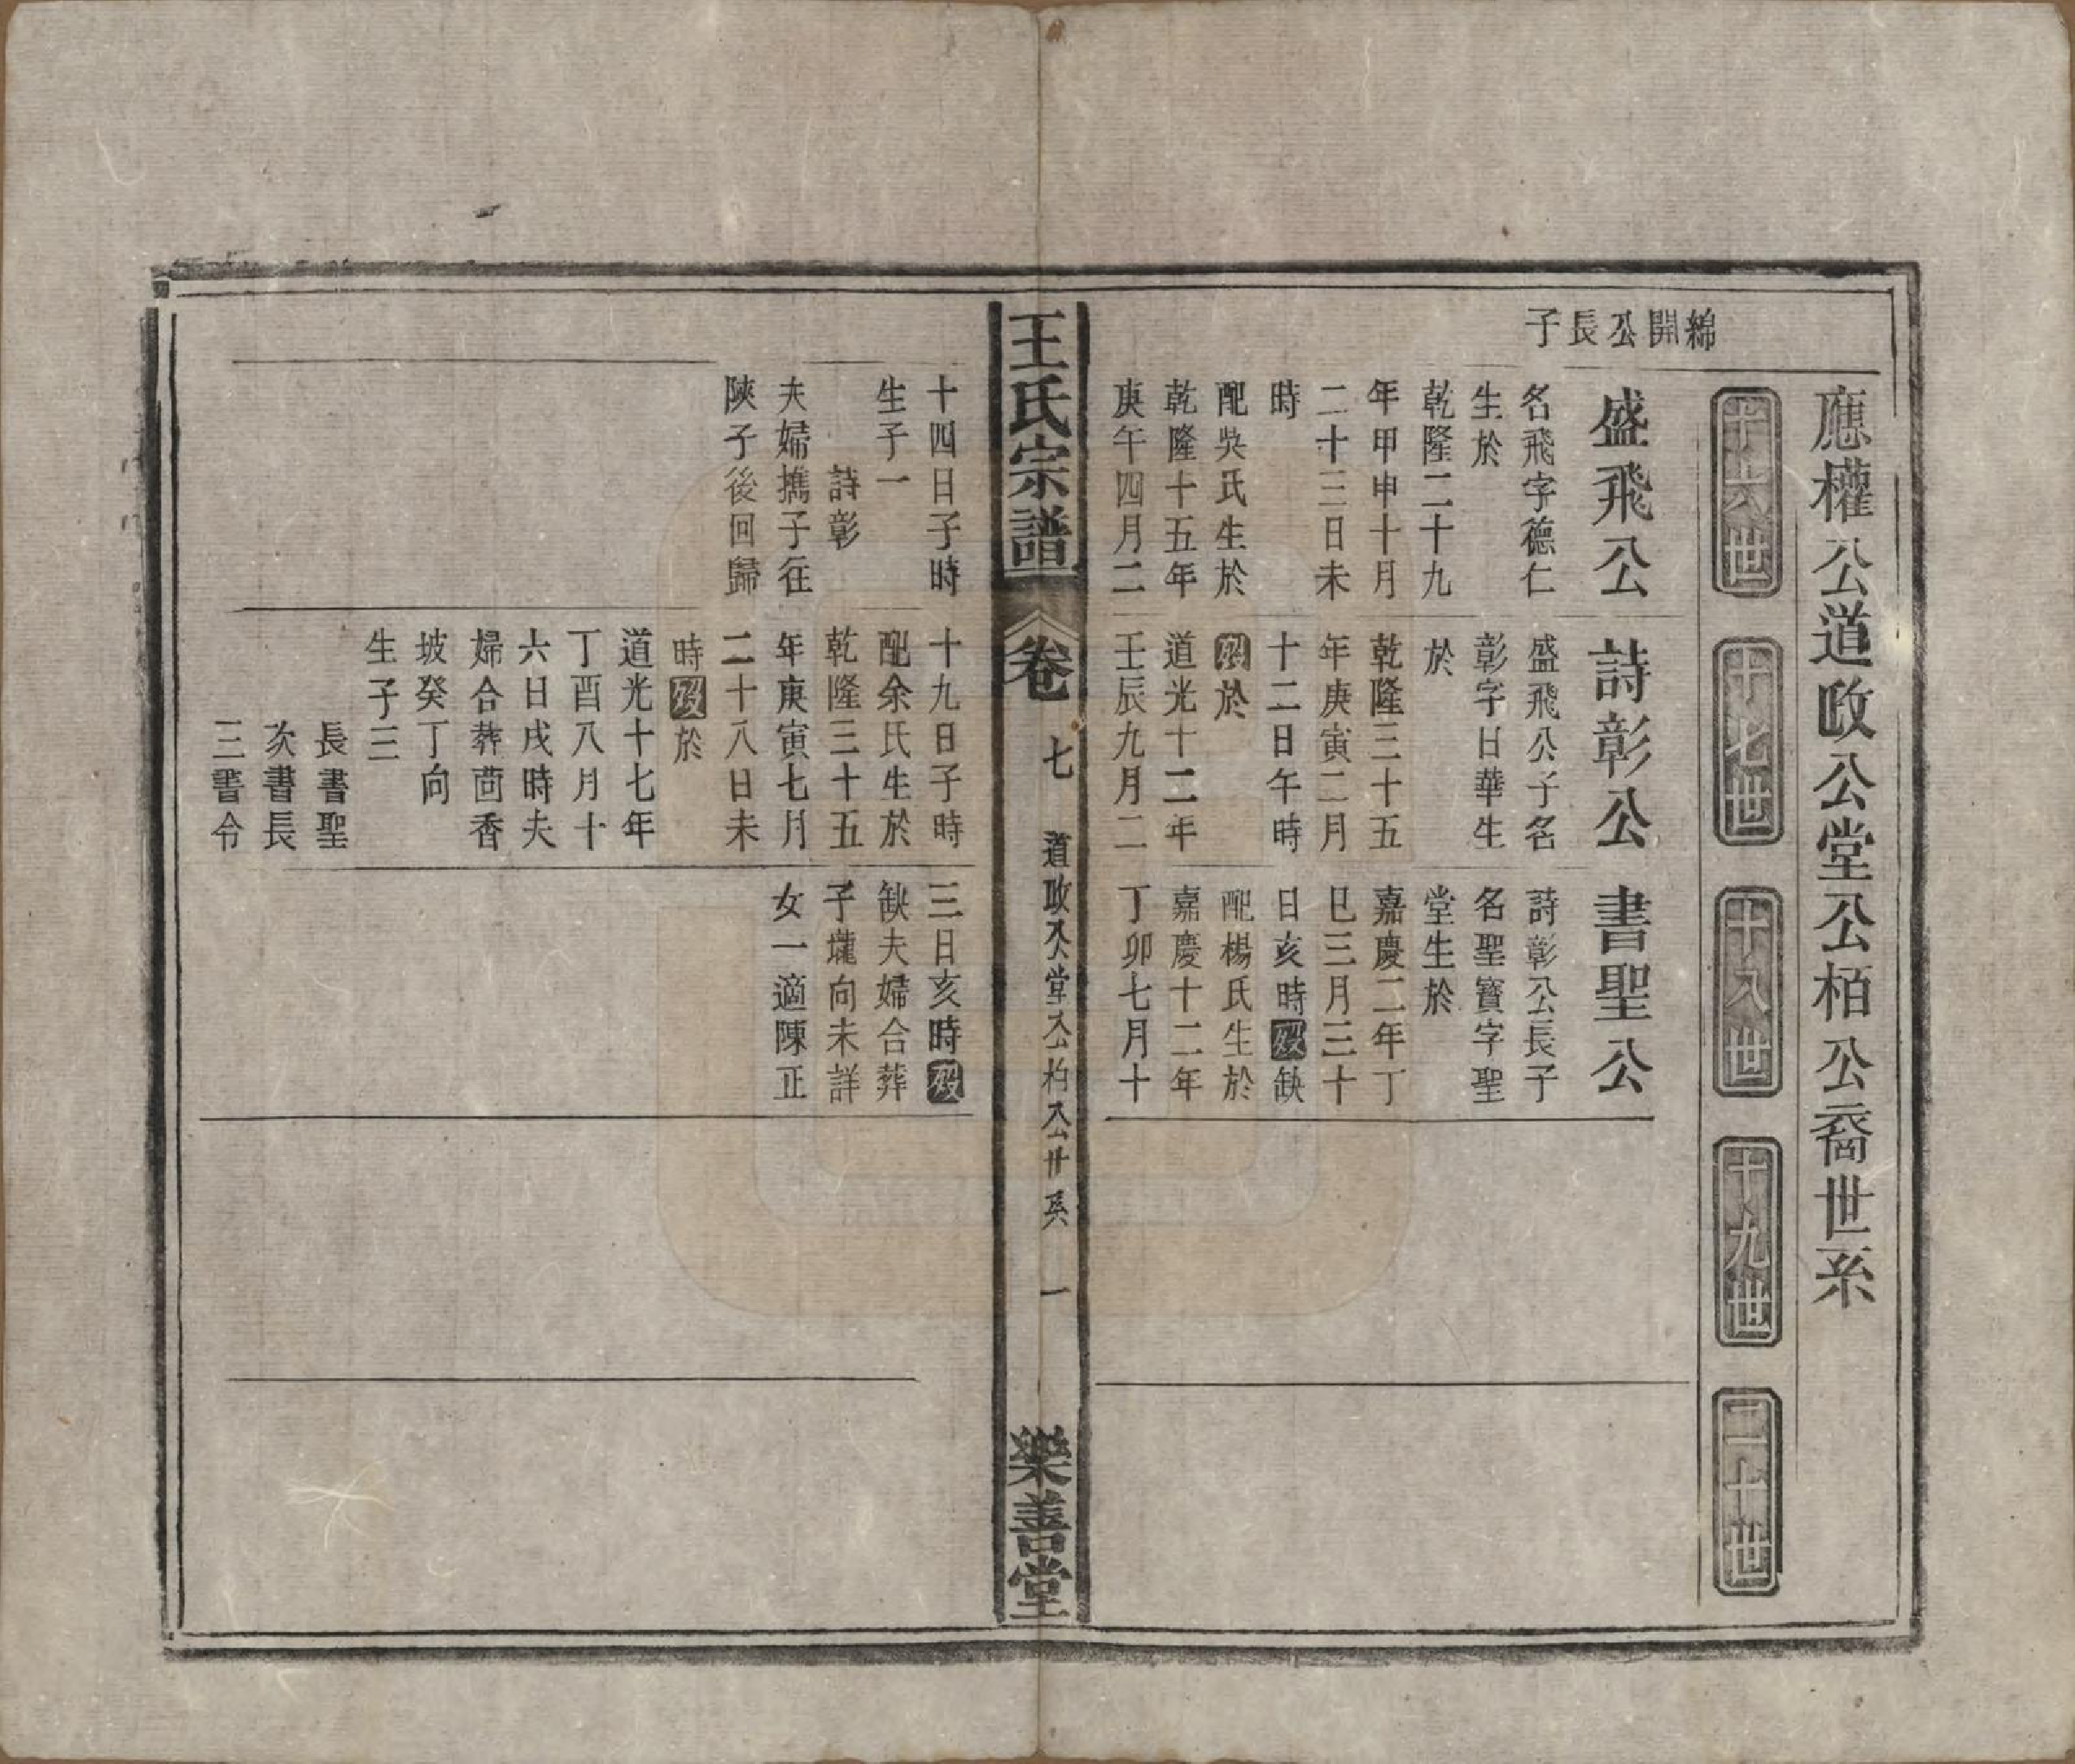 應權公道政公堂公栢公裔世系
十六世
十七世
十八世
十九世
二十世
綿開公長子
盛飛公
名飛字德仁
生於
乾隆二十九
年甲申十月
二十三日未
時
配吳氏生於
乾隆十五年
庚午四月二
十四日子時
生子一
詩彰
夫婦攜子往
陝子後回歸
詩彰公
盛飛公子名
彰字日華生
於
乾隆三十五
年庚寅二月
十二日午時
歿於
道光十二年
壬辰九月二
十九日子時
配余氏生於
乾隆三十五
年庚寅七月
二十八日未
時歿於
道光十七年
丁酉八月十
六日戌時夫
婦合葬茴香
坡癸丁向
生子三
長書聖
次書長
三書令
書聖公
詩彰公長子
名聖寳字聖
堂生於
嘉慶二年丁
巳三月三十
日亥時歿缺
配楊氏生於
嘉慶十二年
丁卯七月十
三日亥時歿
缺夫婦合葬
子壠向未詳
女一適陳正
王氏宗譜
卷七
道政公堂公柏公世系
一
樂善堂